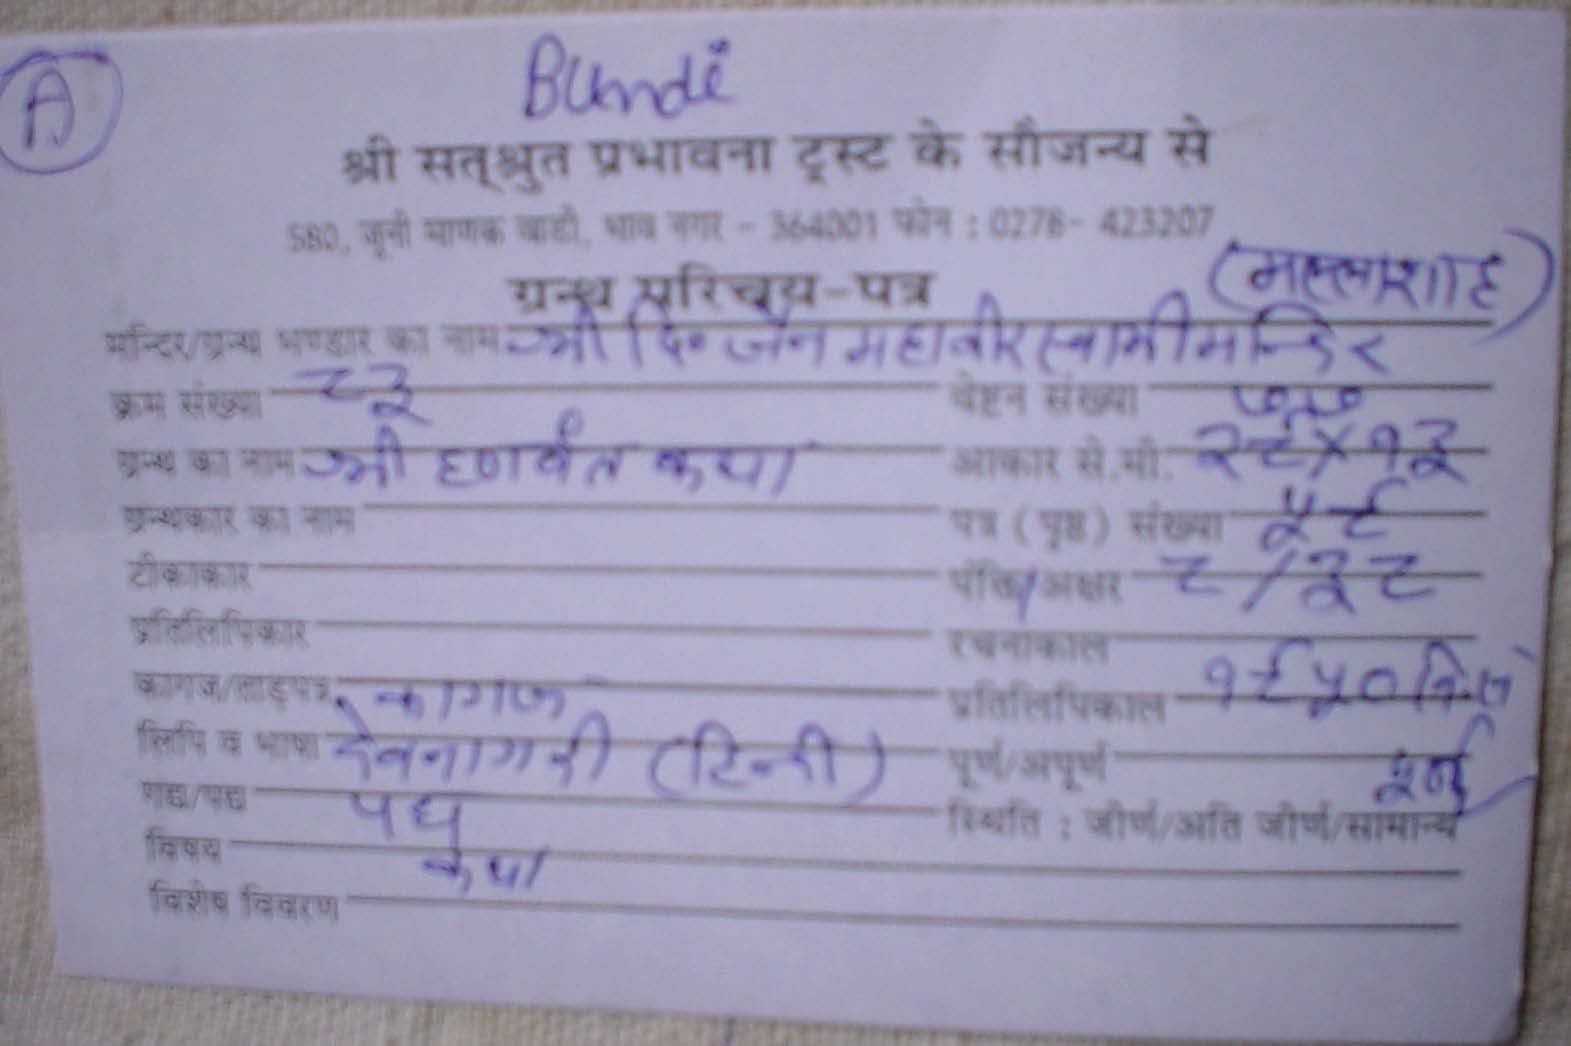 A
Bundi
श्री सत्श्रुत प्रभावना ट्रस्ट के सौजन्य से
580, जूनी माणक वाडी, भाव नगर - 364001 फोन : 0278- 423207
ग्रन्थ परिचय-पत्र (मल्लाशाह)
मन्दिर/ग्रन्थ भण्डार का नाम श्री दि० जैन महावीर स्वामी मन्दिर
क्रम संख्या ८३ वेष्टन संख्या
ग्रन्थ का नाम श्री कथा आकार से.मी. २८X१३
ग्रन्थकार का नाम पत्र (पृष्ठ) संख्या ५९
टीकाकार पंक्ति/अक्षर ८/३८
प्रतिलिपिकार रचनाकाल
कागज/ताड़पत्र कागज प्रतिलिपिकाल १९५० वि.सं
लिपि व भाषा देवनागरी (हिन्दी) पूर्ण/अपूर्ण पूर्ण
गद्य/पद्य पद्य स्थिति : जीर्ण/अति जीर्ण/सामान्य
विषय कथा
विशेष विवरण